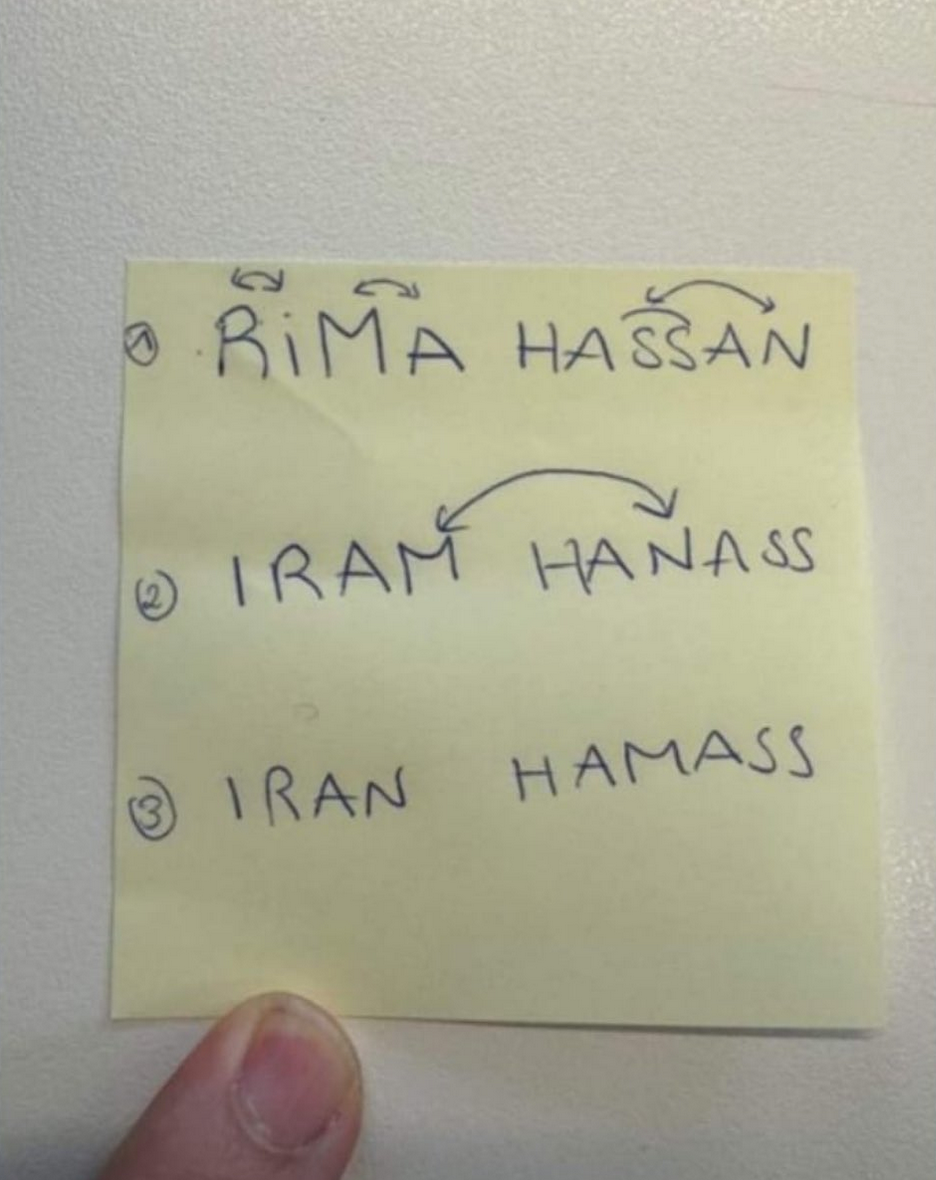 ① RiMA HASSAN
② IRAM HANASS
③ IRAN HAMASS